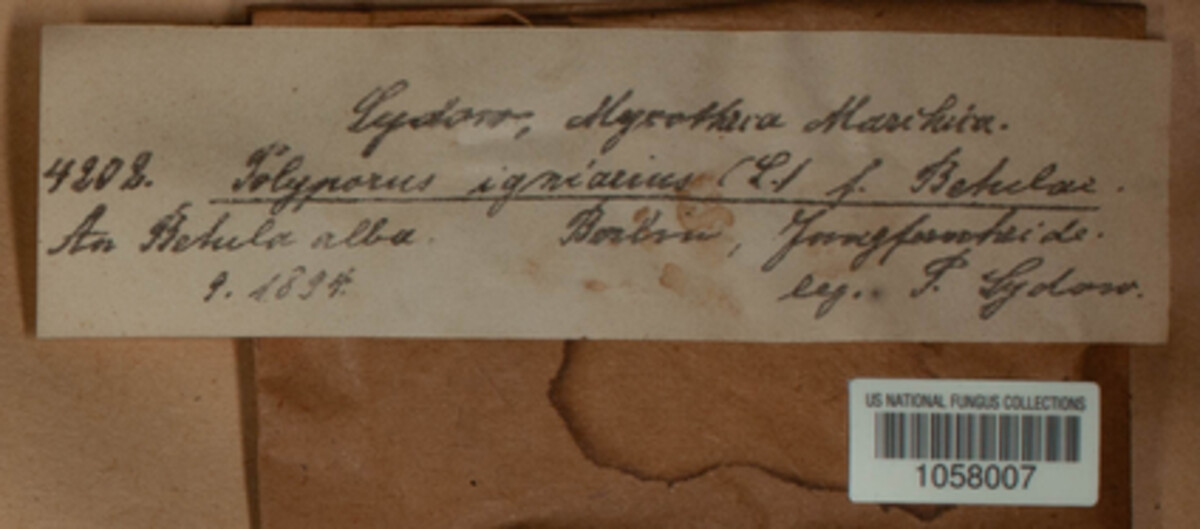 Sydow, Mycotheca Marchica.
4202. Polyporus igniarius (L.) f. Betulae.
An Betula alba. Berlin, Jungfernheide.
9. 1894. leg. P. Sydow.
US NATIONAL FUNGUS COLLECTIONS
1058007